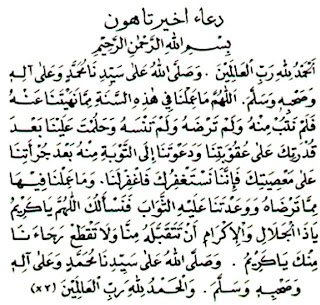 دعاء اخيرتاهون
بِسْمِ اللهِ الرَّحْمٰنِ الرَّحِيْمِ
اَلْحَمْدُ لِلّٰهِ رَبِّ الْعَالَمِيْنَ . وَصَلَّى اللهُ عَلَى سَيِّدِنَا مُحَمَّدٍ وَعَلَى آلِهِ
وَصَحْبِهِ وَسَلَّمَ . اَللّٰهُمَّ مَا عَمِلْنَا فِي هٰذِهِ السَّنَةِ مِمَّا نَهَيْتَنَا عَنْهُ
فَلَمْ نَتُبْ مِنْهُ وَلَمْ تَرْضَهُ وَلَمْ تَنْسَهُ وَحَلُمْتَ عَلَيْنَا بَعْدَ
قُدْرَتِكَ عَلَى عُقُوْبَتِنَا وَدَعَوْتَنَا إِلَى التَّوْبَةِ مِنْهُ بَعْدَ جُرْأَتِنَا
عَلَى مَعْصِيَتِكَ فَإِنَّنَا نَسْتَغْفِرُكَ فَاغْفِرْلَنَا . وَمَا عَمِلْنَا فِيْهَا
مِمَّا تَرْضَاهُ وَوَعَدْتَنَا عَلَيْهِ الثَّوَابَ فَنَسْأَلُكَ اللّٰهُمَّ يَا كَرِيْمُ
يَاذَا الْجَلَالِ وَالْإِكْرَامِ أَنْ تَتَقَبَّلَهُ مِنَّا وَلَا تَقْطَعْ رَجَاءَنَا
مِنْكَ يَا كَرِيْمُ . وَصَلَّى اللهُ عَلَى سَيِّدِنَا مُحَمَّدٍ وَعَلَى آلِهِ
وَصَحْبِهِ وَسَلَّمَ . وَالْحَمْدُ لِلّٰهِ رَبِّ الْعَالَمِيْنَ (x٣)